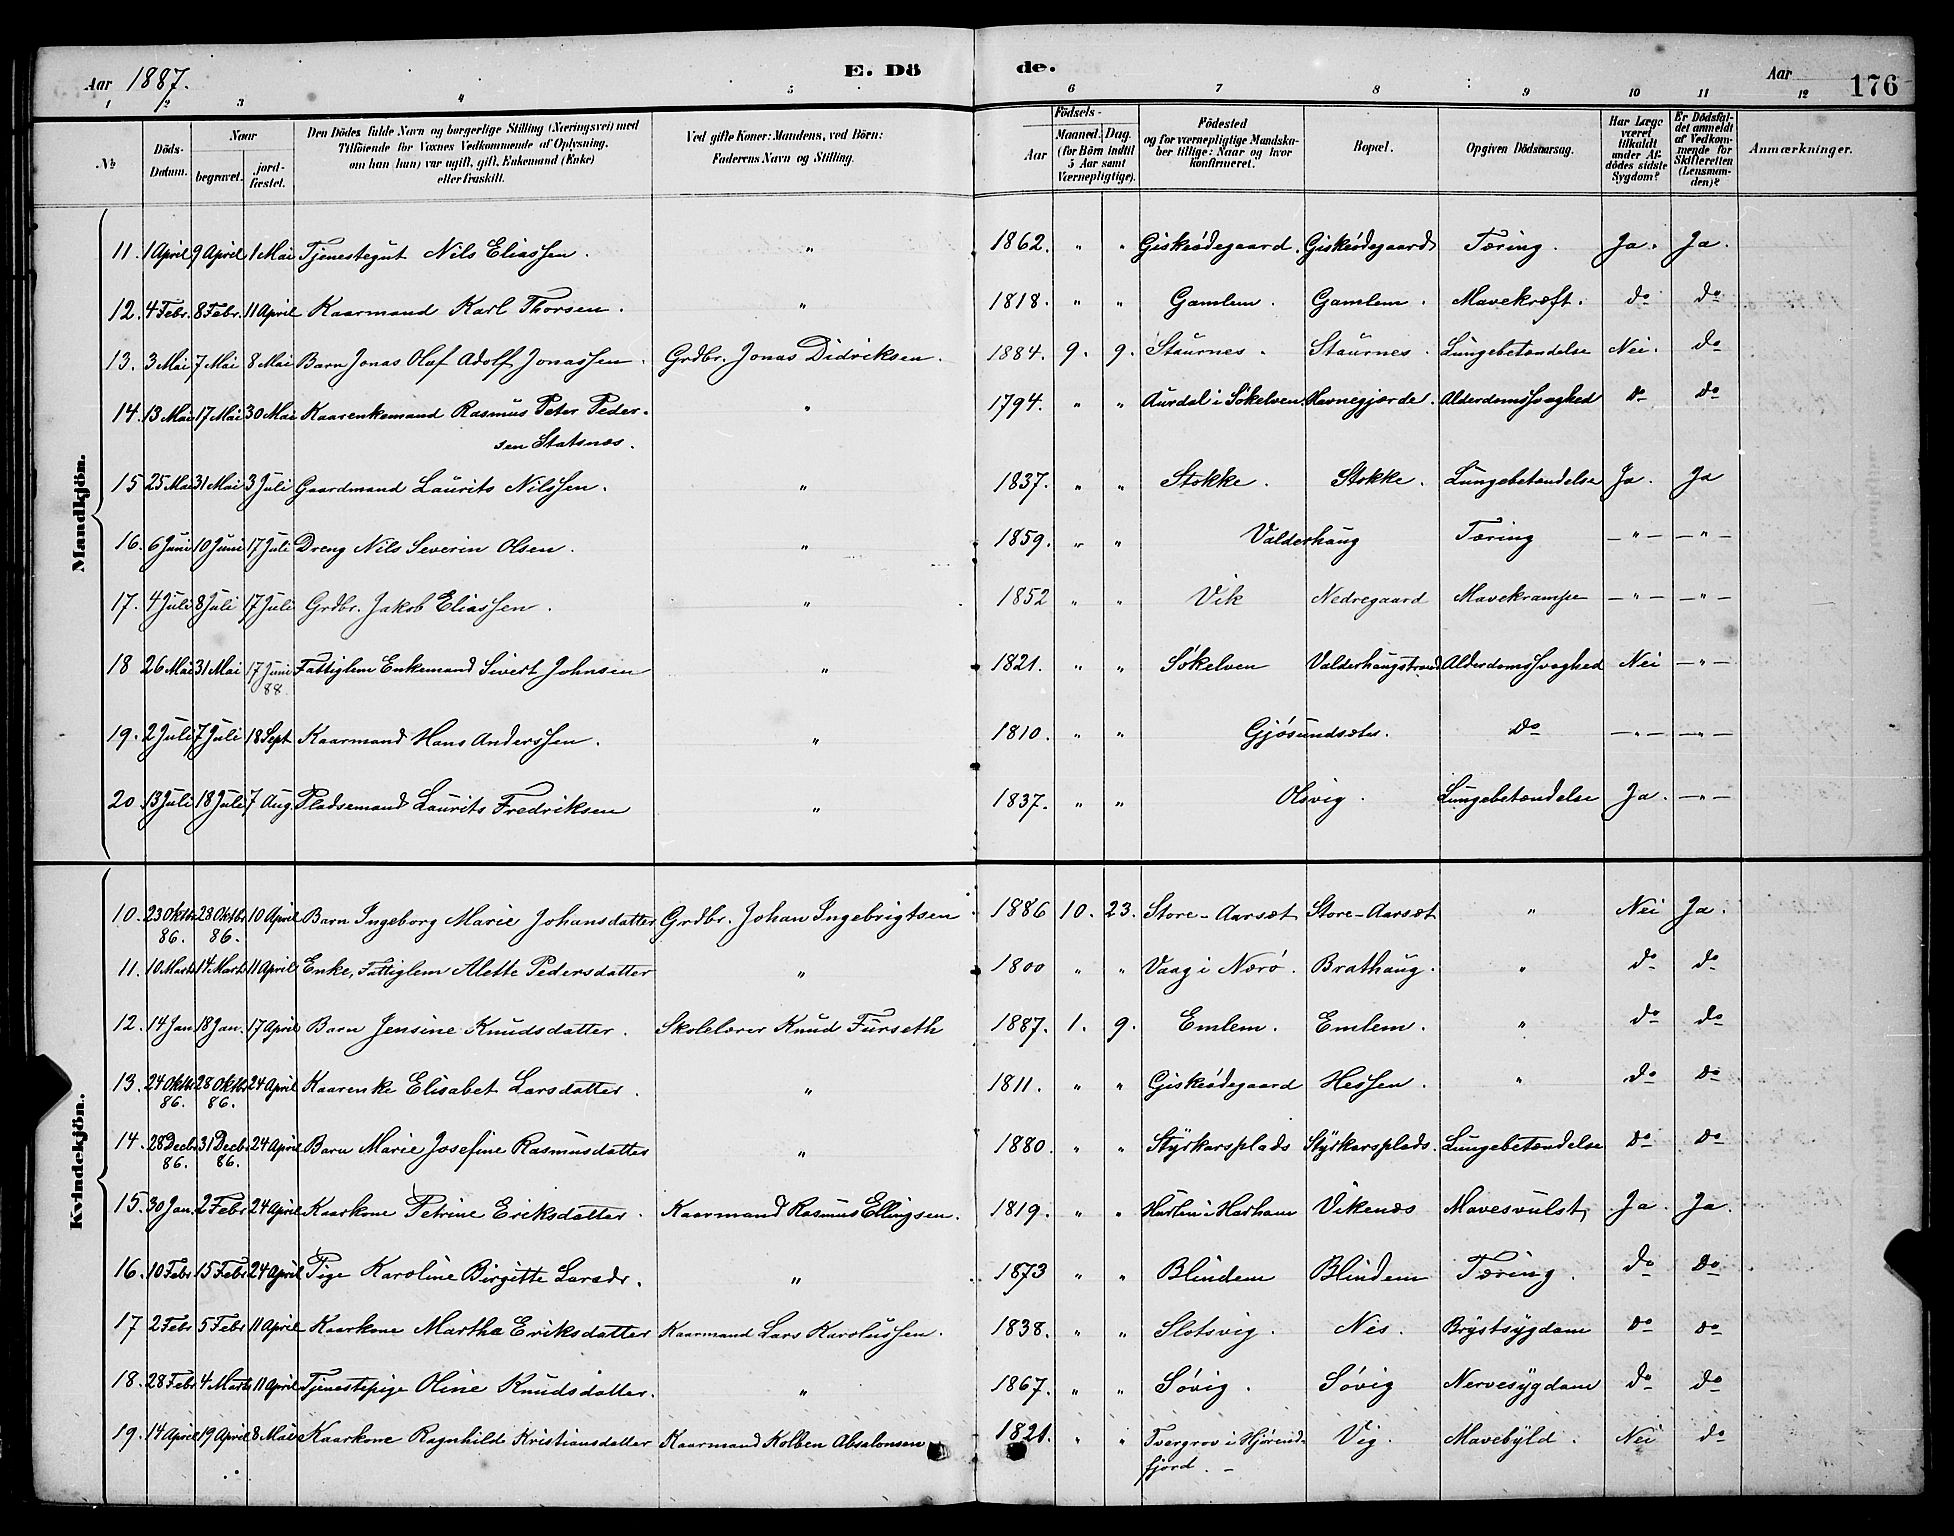 Aar 1887. E. Dö de. Aar 176
1 2 3 4 5 6 7 8 9 10 11 12
№ Döds-Datum. Naar begravet. jord-fæstet. Den Dödes fulde Navn og borgerlige Stilling (Næringsvei) med Tilföiende for Voxnes Vedkommende af Oplysning, om han (hun) var ugift, gift, Enkemand (Enke) eller fraskilt. Ved gifte Koner: Mandens, ved Börn: Faderens Navn og Stilling. Födsels- Aar Maaned. Dag. (for Börn indtil 5 Aar samt Værnepligtige). Födested og for værnepligtige Mandska-ber tillige: Naar og hvor konfirmeret. Bopæl. Opgiven Dödsaarsag. Har Læge været tilkaldt under Af-dödes sidste Sygdom? Er Dödsfal-det anmeldt af Vedkom-mende for Skifteretten (Lensman-den)? Anmærkninger.
Mandkjön.
11. 1 April 9 April 1 Mai Tjenestegut Nils Eliassen. " 1862. " " Giskeødegaard. Giskeødegaard Tæring. Ja. Ja.
12. 4 Febr. 8 Febr. 11 April Kaarmand Karl Thorsen. " 1818. " " Gamlem. Gamlem. Mavekræft. do do
13. 3 Mai 7 Mai 8 Mai Barn Jonas Olaf Adolf Jonassen. Grdbr. Jonas Didriksen. 1884. 9. 9. Staurnes. Staurnes. Lungebetændelse Nei. do
14. 13 Mai 17 Mai 30 Mai Kaarenkemand Rasmus Peter Peder- " 1794. " " Aurdal i Søkelven Havnegjærde. Alderdomssvaghed do do
sen Statsnes.
15 25 Mai 31 Mai 3 Juli Gaardmand Laurits Nilssen. " 1837. " " Stokke. Stokke. Lungebetændelse Ja. Ja
16. 6 Juni 10 Juni 17 Juli Dreng Nils Severin Olsen. " 1859. " " Valderhaug Tæring — " — — " —
17. 4 Juli 8 Juli 17 Juli Grdbr. Jakob Eliassen. " 1852 " " Vik Nedregaard Mavekrampe — " — — " —
18 26 Mai 31 Mai 17 Juni Fattiglem Enkemand Sivert Johnsen " 1821. " " Søkelven Valderhaugstrand Alderdomssvaghed Nei — " —
88.
19. 2 Juli 7 Juli 18 Sept Kaarmand Hans Anderssen. " 1810. " " Gjøsundsæter. do — " — — " —
20. 13 Juli 18 Juli 7 Aug. Pladsemand Laurits Fredriksen " 1837. " " Olsvig. Lungebetændelse Ja. — " —
Kvindekjön.
10. 23 Oktbr 28 Oktbr 10 April Barn Ingeborg Marie Johansdatter Grdbr. Johan Ingebrigtsen 1886 10. 23. Store-Aarsæt Store-Aarsæt " Nei Ja.
86. 86.
11. 10 Marts 14 Marts 11 April Enke, Fattiglem Alette Pedersdatter " 1800 " " Vaag i Nærø. Brathaug. " do do
12. 14 Jan. 18 Jan. 17 April Barn Jensine Knudsdatter. Skolelærer Knud Furseth 1887. 1. 9. Emlem. Emlem. " do do
13. 24 Oktbr 28 Oktbr 24 April Kaarenke Elisabet Larsdatter. " 1811. " " Giskeødegaard Hessen. " do do
86. 86.
14. 28 Decb 31 Decb 24 April Barn Marie Josefine Rasmusdatter " 1880. " " Styrkarsplads Styrkarsplads. Lungebetændelse do do
86. 86.
15. 30 Jan. 2 Febr 24 April Kaarkone Petrine Eriksdatter. Kaarmand Rasmus Ellingsen. 1819. " " Hurlen i Harham Vikenæs Mavesvulst Ja. Ja.
16. 10 Febr 15 Febr 24 April Pige Karoline Birgitte Larsdr. " 1873 " " Blindem Blindem Tæring. do do
17 2 Febr 5 Febr 11 April Kaarkone Martha Eriksdatter Kaarmand Lars Karolussen. 1838. " " Slotsvig. Nes. Brystsygdom do do
18. 28 Febr 4 Marts 11 April Tjenestepige Oline Knudsdatter. " 1867. " " Søvig. Søvig Nervesygdom do do
19. 14 April 19 April 8 Mai Kaarkone Ragnhild Kristiansdatter Kaarmand Kolben Absalonsen 1821. " " Tvergrov i Hjørund- Vig. Mavebyld. Nei do
fjord. –